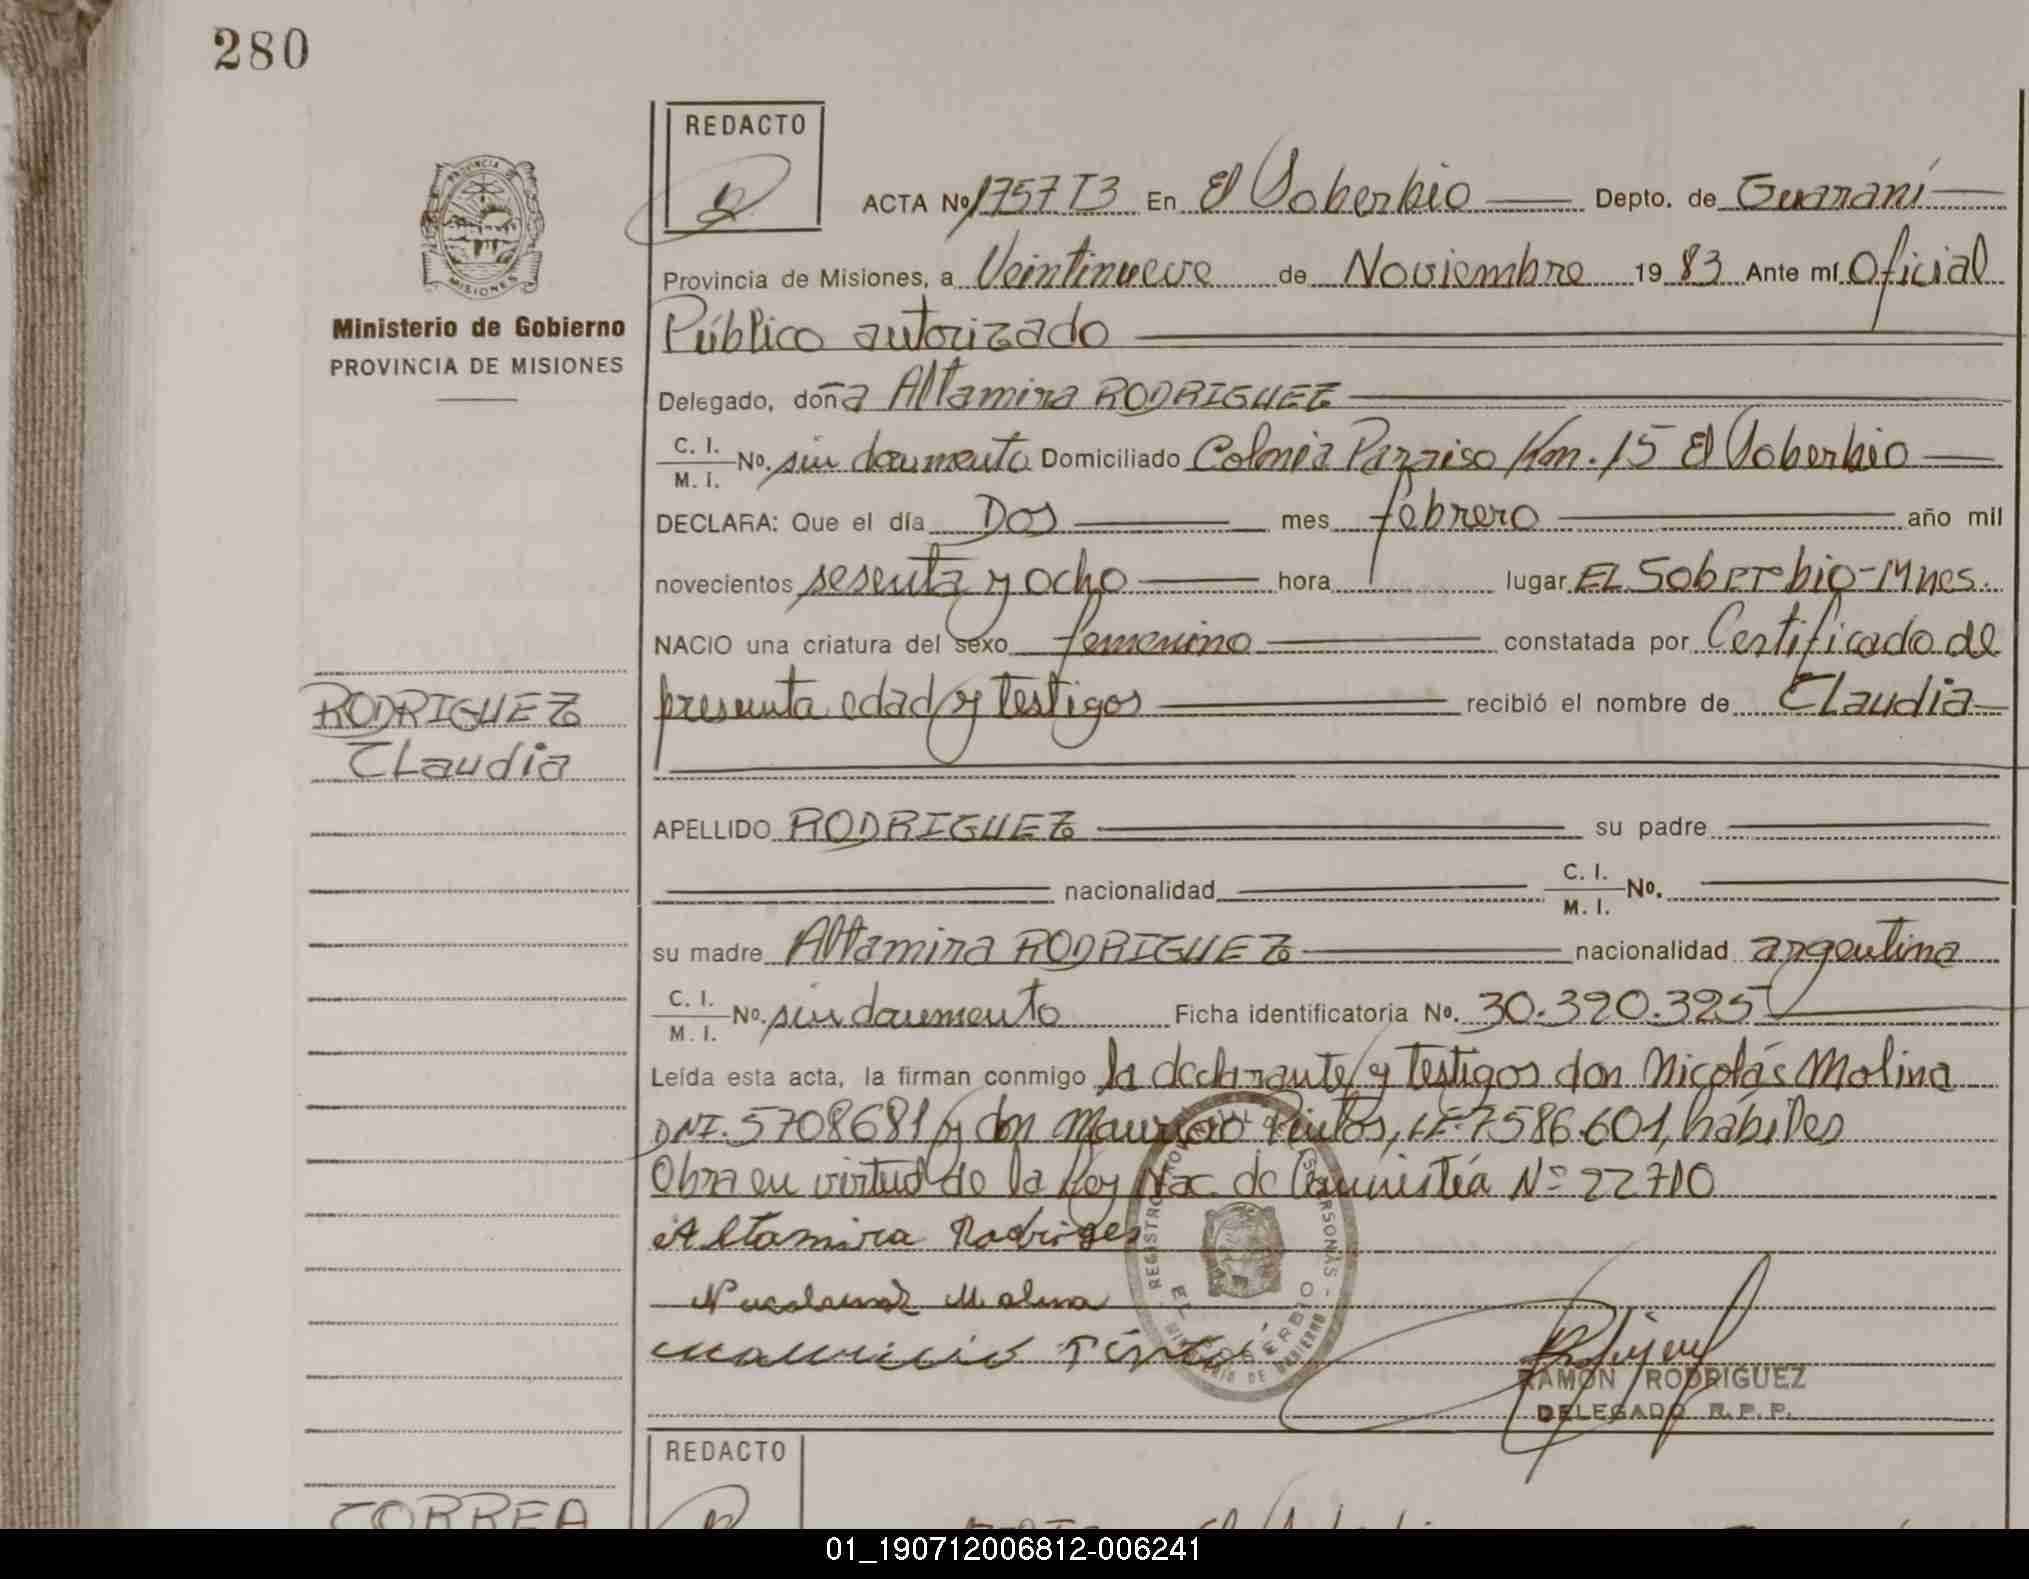 280
REDACTO
ACTA Nº 1757 T3 En El Soberbio Depto. de Guaraní
Provincia de Misiones, a Veintinueve de Noviembre 1983 Ante mí Oficial
Público autorizado
Ministerio de Gobierno
PROVINCIA DE MISIONES
Delegado, doña Altamira RODRIGUEZ
C. I.
M. I. Nº. sin documento Domiciliado Colonia Paraiso Km. 15 El Soberbio
DECLARA: Que el día Dos mes febrero año mil
novecientos sesenta y ocho hora lugar EL Soberbio-Mnes.
NACIO una criatura del sexo femenino constatada por Certificado de
presunta edad y testigos recibió el nombre de Claudia
RODRIGUEZ
Claudia
APELLIDO RODRIGUEZ su padre
nacionalidad C. I.
M. I. Nº.
su madre Altamira RODRIGUEZ nacionalidad argentina
C. I.
M. I. Nº. sin documento Ficha identificatoria Nº. 30.390.395
Leída esta acta, la firman conmigo la declarante y testigos don Nicolás Molina
DNI. 5708681 y don Mauricio Pintos, LE. 7586.601, hábiles
Obra en virtud de la Ley Nac. de Amnistía Nº 22710
Altamira Rodriges
Molina
Mauricio Pinto
REGISTRO PROVINCIAL DE LAS PERSONAS
EL SOBERBIO
MINISTERIO DE GOBIERNO
RAMON RODRIGUEZ
DELEGADO R. P. P.
REDACTO
CORREA
El Soberbio
01_190712006812-006241